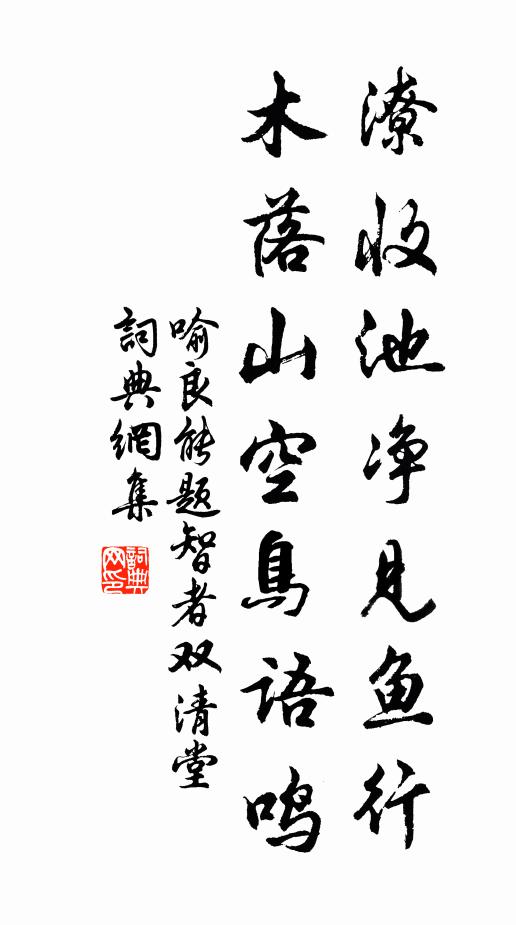 潦收池净见鱼行
木落山空鳥语鸣
喻良能题智者双清堂
詞典網集
詞典网印